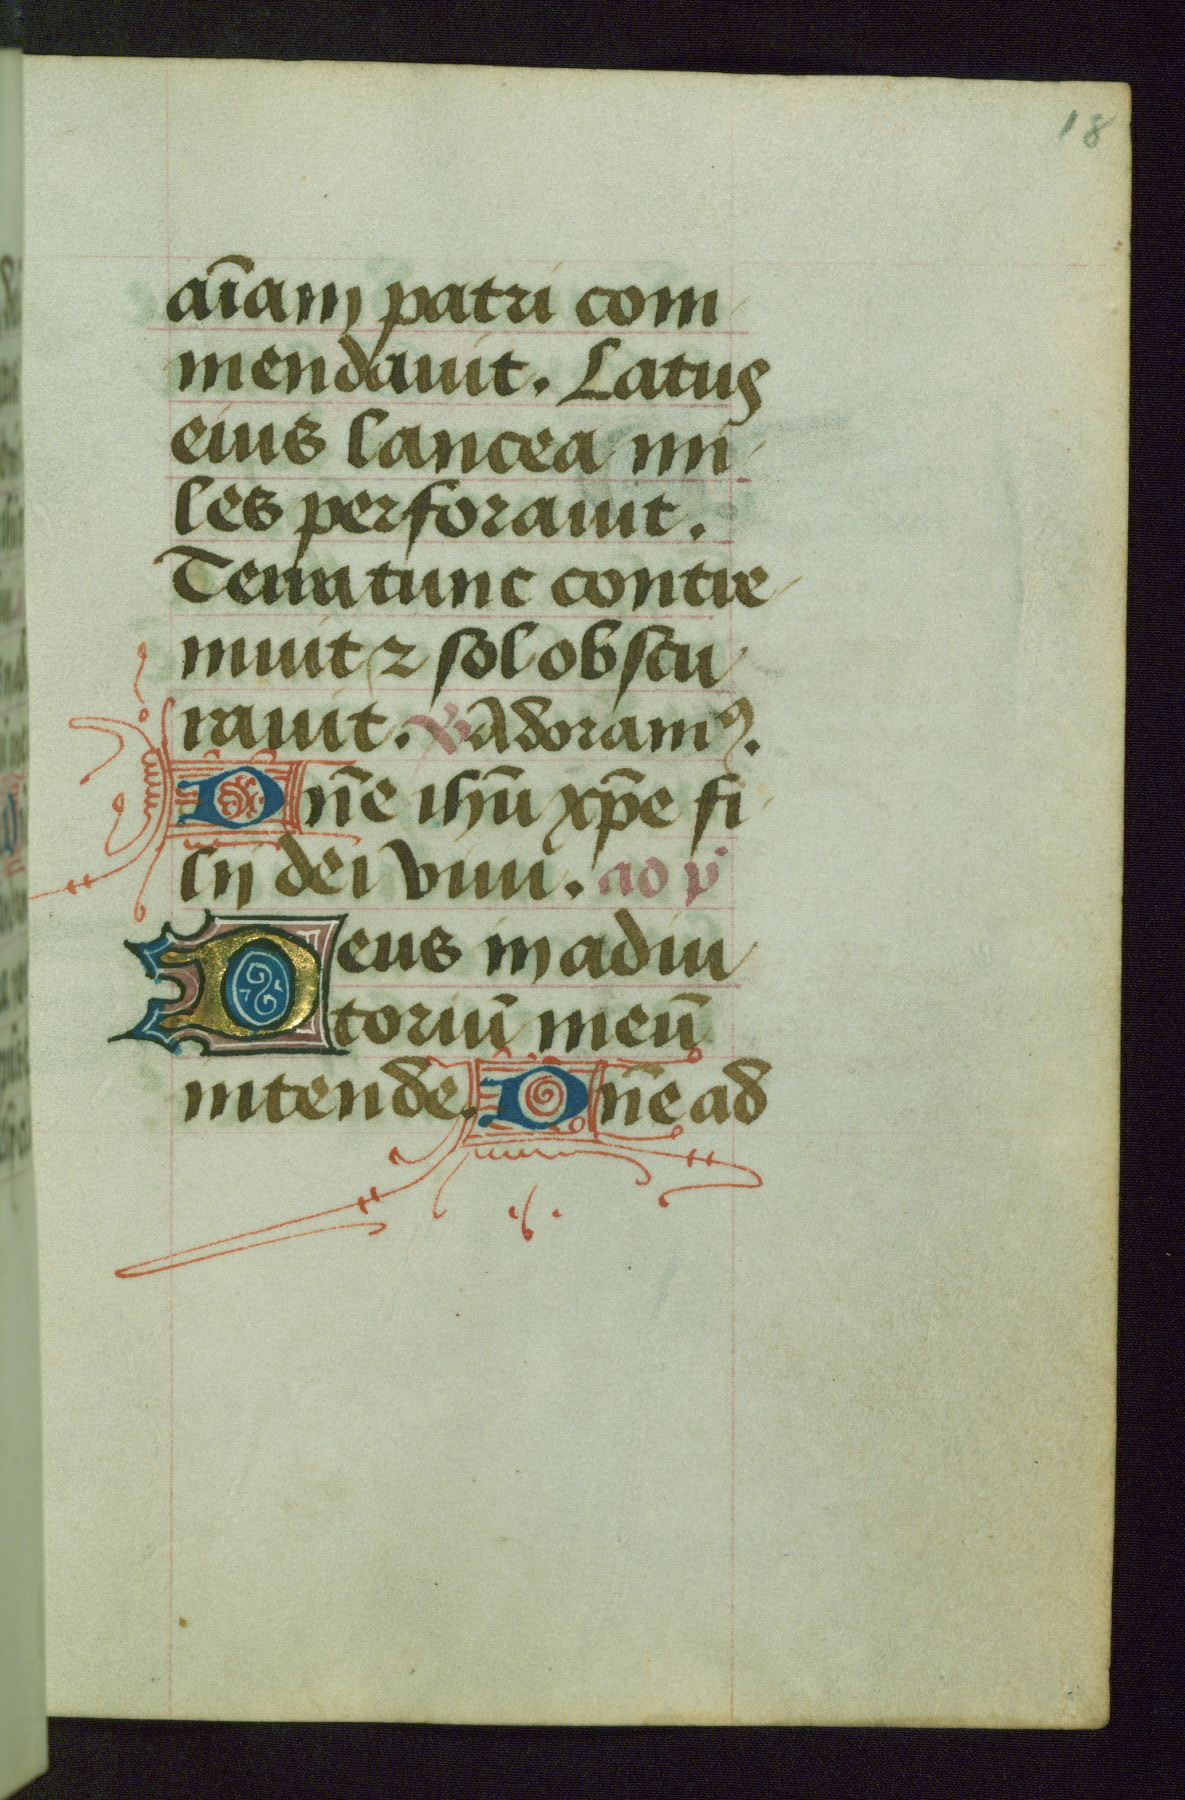 18
aīam patri com
mendauit. Latus
eius lancea mi
les perforauit.
Terra tunc contre
muit ⁊ sol obscu
rauit. V. Adoramꝰ.
Dn̄e ihū xp̄e fi
lij dei viui. ad p̄
Deus in adiu
toriū meū
intende. Dn̄e ad